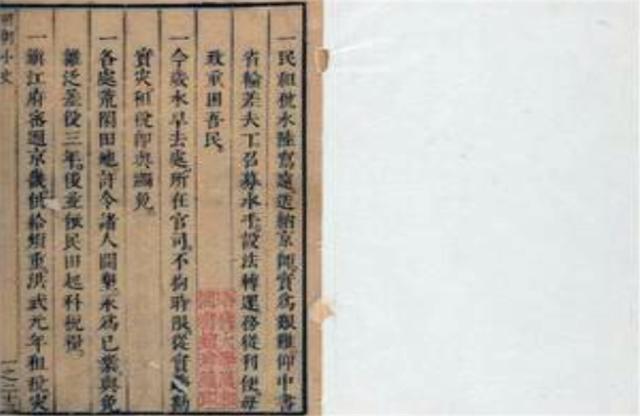 一民租稅水陸寫遠送納京師實爲艱難仰中書
省輪差夫丁召募水手設法轉運務從利便毋
致重困吾民
一今歲水旱去處所在官司不拘時限從實踏勘
實灾租稅卽與蠲免
一各處荒閑田地許令諸人開墾永爲己業與免
雜泛差役三年後並依民田起科稅糧
一鎮江府密邇京畿供給煩重洪武元年租稅
明朝小史